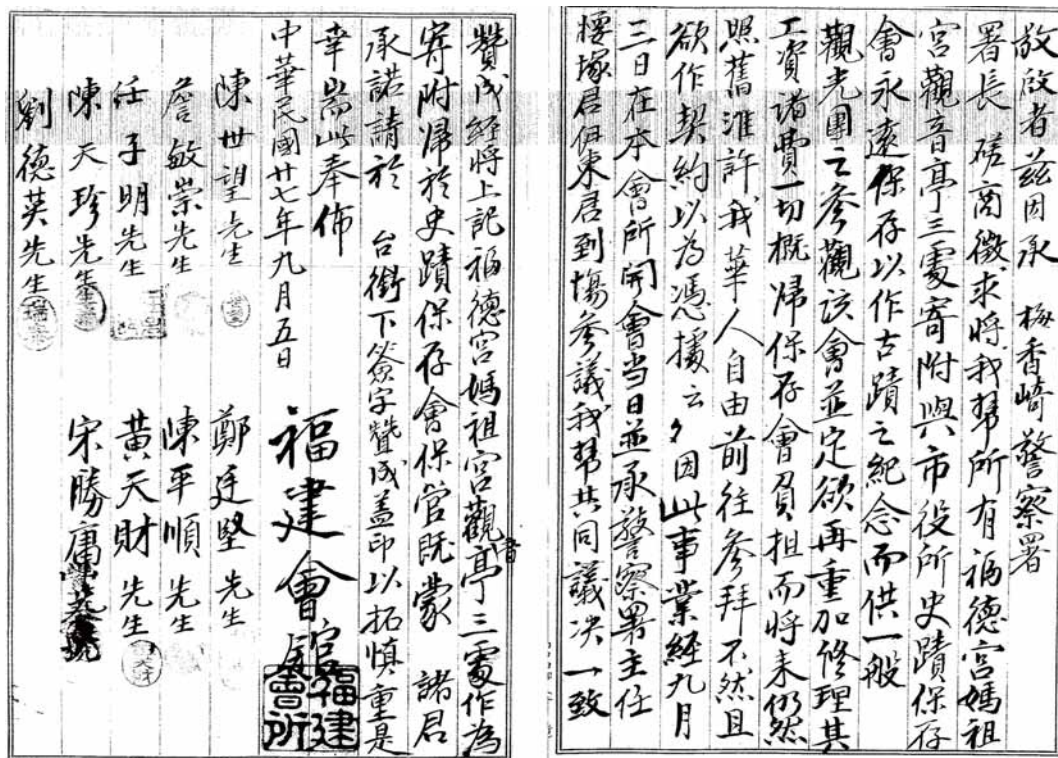 敬啟者茲因承 梅香崎警察署
署長 磋商徵求將我幫所有福德宮媽祖
宮觀音亭三處寄附與市役所史蹟保存
會永遠保存以作古蹟之紀念而供一般
觀光團之參觀該會並定欲再重加修理其
工資諸費一切概歸保存會負担而將来仍然
照舊准許我華人自由前往參拜不然且
欲作契約以為憑據云々因此事業經九月
三日在本會所開會当日並承警察署主任
塚君伊東君到塲參議我幫共同議决一致
贊成經將上記福德宮媽祖宮觀音亭三處作為
寄附歸於史蹟保存會保管既蒙 諸君
承諾請於 台銜下簽字贊成盖印以拓慎重是
幸耑此奉佈
中華民國廿七年九月五日 福建會館
福建會所
陳世望先生 鄭廷堅先生
詹敏崇先生 陳平順先生
任子明先生 黃天財先生
陳天珍先生 宋勝庸
劉德英先生